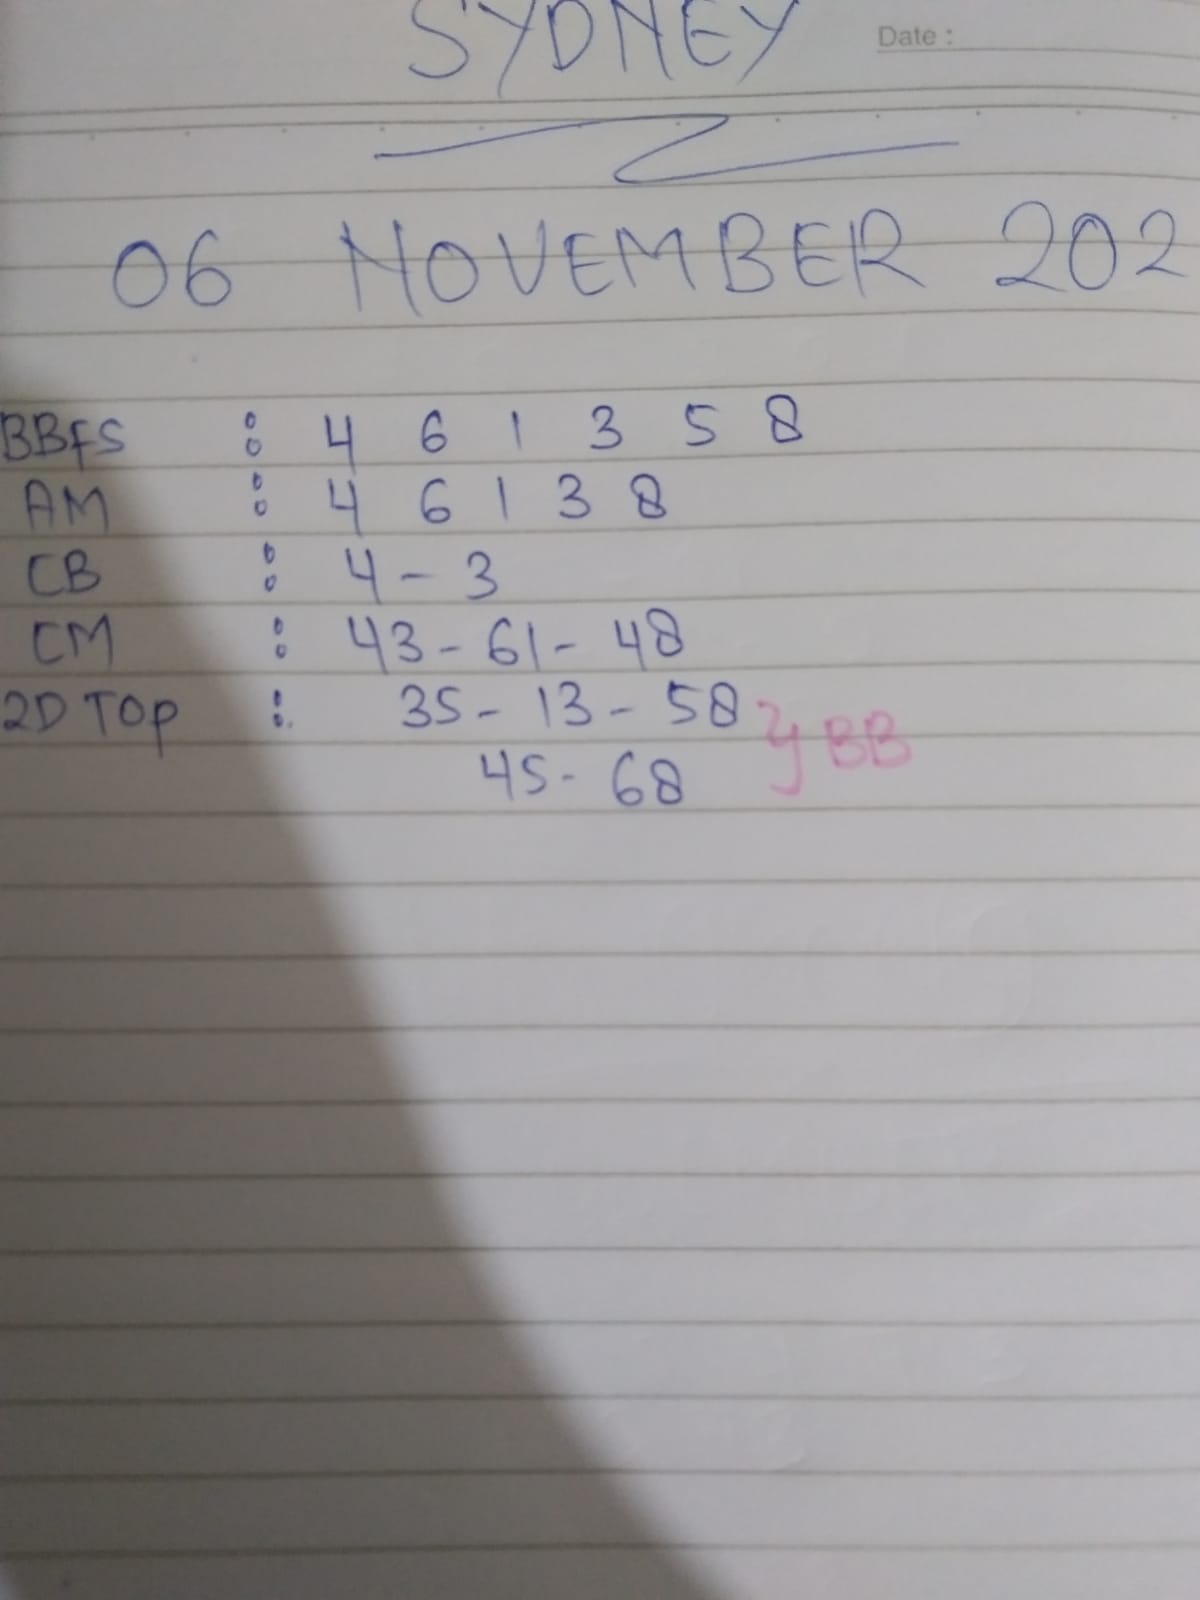 SYDNEY
Date :
06 NOVEMBER 202
BBFS : 4 6 1 3 5 8
AM : 4 6 1 3 8
CB : 4 - 3
CM : 43 - 61 - 48
2D TOP : 35 - 13 - 58
45 - 68 } BB